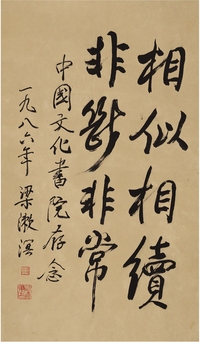 相似相續
非斷非常
中國文化書院存念
一九八六年 梁漱溟